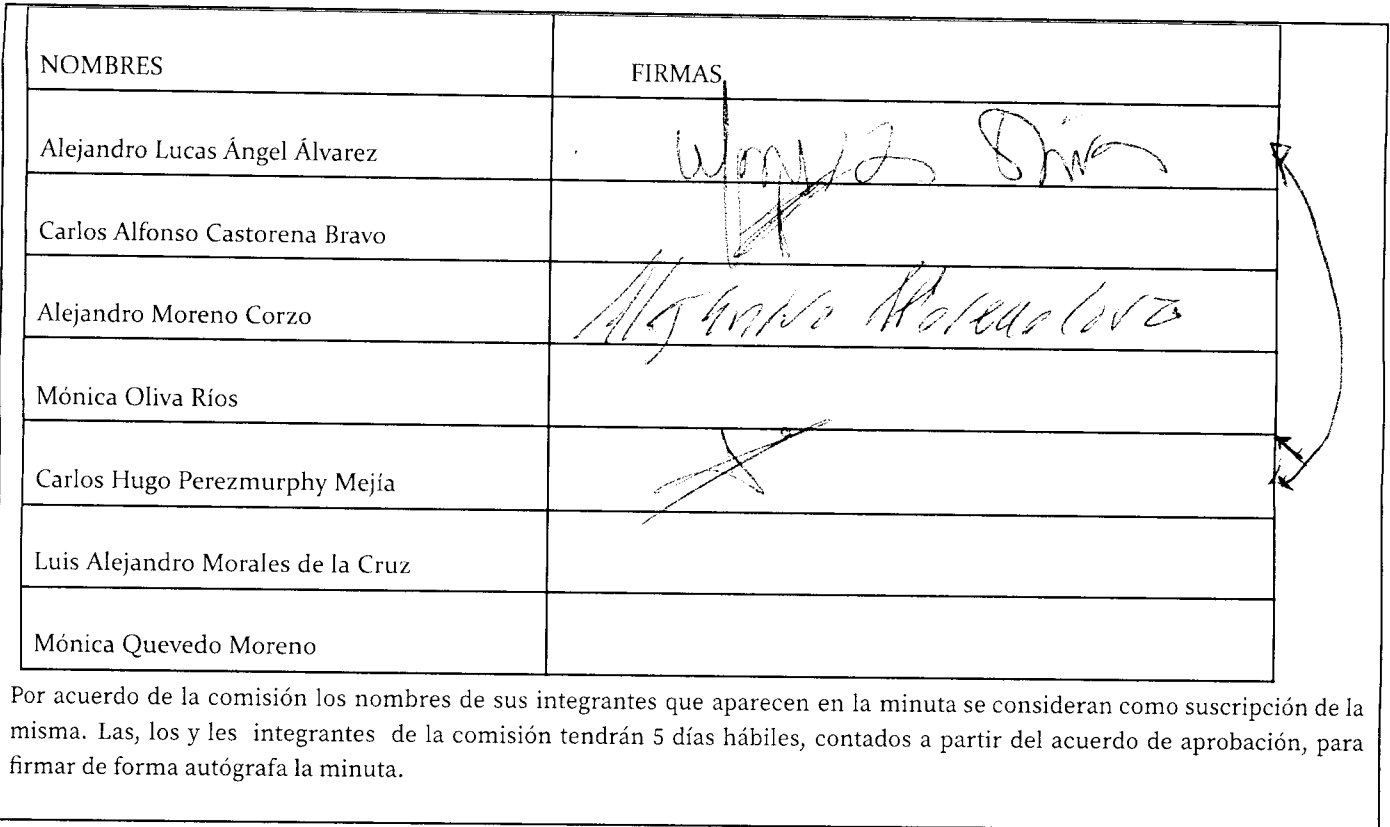 NOMBRES FIRMAS
Alejandro Lucas Ángel Álvarez
Carlos Alfonso Castorena Bravo
Alejandro Moreno Corzo Alejandro Moreno Corzo
Mónica Oliva Ríos
Carlos Hugo Perezmurphy Mejía
Luis Alejandro Morales de la Cruz
Mónica Quevedo Moreno
Por acuerdo de la comisión los nombres de sus integrantes que aparecen en la minuta se consideran como suscripción de la
misma. Las, los y les integrantes de la comisión tendrán 5 días hábiles, contados a partir del acuerdo de aprobación, para
firmar de forma autógrafa la minuta.